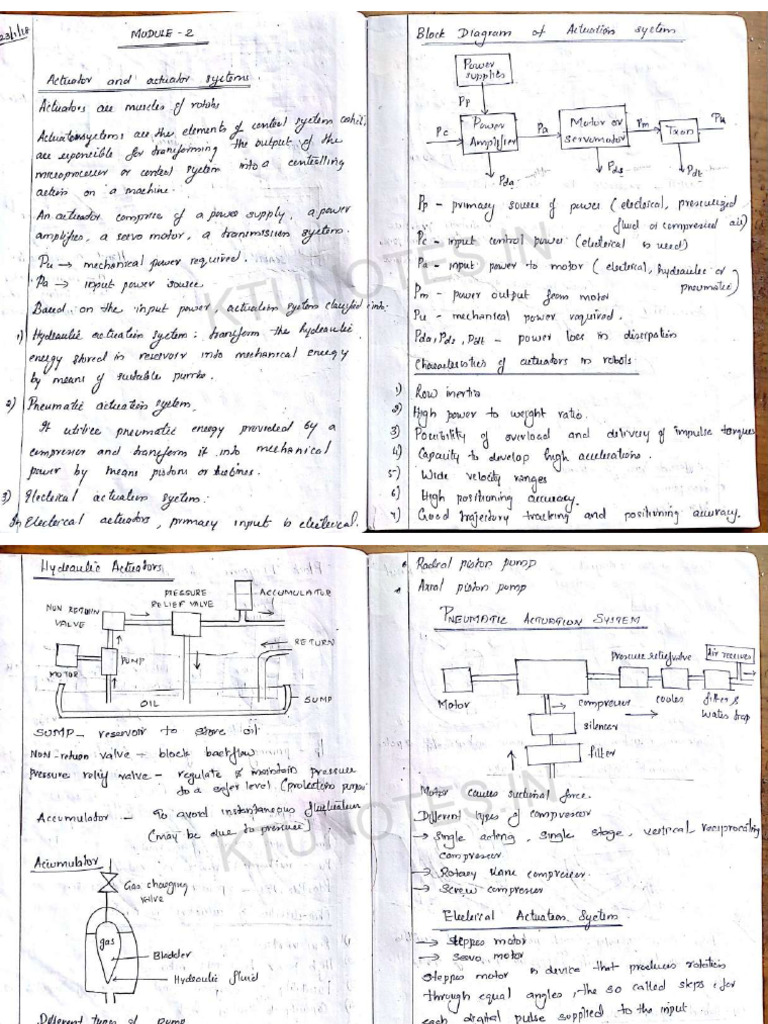 23/1/18
MODULE - 2
Actuator and actuator systems.
Actuators are muscles of robots
Actuator systems are the elements of control system which
are responsible for transforming the output of the
microprocessor or control system into a controlling
action on a machine.
An actuator comprise of a power supply, a power
amplifier, a servo motor, a transmission system.
Pu → mechanical power required.
Pa → input power source
Based on the input power, actuation system classified into:
1) Hydraulic actuation system: transform the hydraulic
energy stored in reservoir into mechanical energy
by means of suitable pumps.
2) Pneumatic actuation system.
It utilize pneumatic energy provided by a
compressor and transform it into mechanical
power by means pistons or turbines.
3) Electrical actuation system:
In Electrical actuators, primary input is electrical.
Block Diagram of Actuation system
Power
supplies
Pp
Pc
Power
Amplifier
Pa
Motor or
servomotor
Pm
Txon
Pu
Pda
Pds
Pdt
Pp - primary source of power (electrical, pressurized
fluid or compressed air)
Pc - input control power (electrical is used)
Pa - input power to motor (electrical, hydraulic or
pneumatic)
Pm - power output from motor
Pu - mechanical power required.
Pda, Pds, Pdt - power loss in dissipation
Characteristics of actuators in robots
1) Row inertia
2) High power to weight ratio.
3) Possibility of overload and delivery of impulse torques
4) Capacity to develop high accelerations.
5) Wide velocity ranges
6) High positioning accuracy.
7) Good trajectory tracking and positioning accuracy.
KTUNOTES.IN
Hydraulic Actuators
NON RETURN
VALVE
PRESSURE
RELIEF VALVE
ACCUMULATOR
RETURN
MOTOR
PUMP
OIL
SUMP
SUMP - reservoir to store oil
Non-return valve - block backflow
Pressure relief valve - regulate & maintain pressure
to a safer level. (protection purpose)
Accumulator - To avoid instantaneous fluctuation
(may be due to pressure)
Accumulator
Gas charging
valve
gas
Bladder
Hydraulic fluid
Different types of pump
Radial piston pump
Axial piston pump
PNEUMATIC ACTUATION SYSTEM
Pressure relief valve
Air receiver
Motor
compressor
cooler
filter &
water trap
silencer
filter
Motor causes suctional force.
Different types of compressor
→ Single acting, single stage, vertical reciprocating
compressor
→ Rotary vane compressor
→ Screw compressor
Electrical Actuation System
→ stepper motor
→ Servo motor
stepper motor is device that produces rotation
through equal angles, the so called steps, for
each digital pulse supplied to the input
KTUNOTES.IN